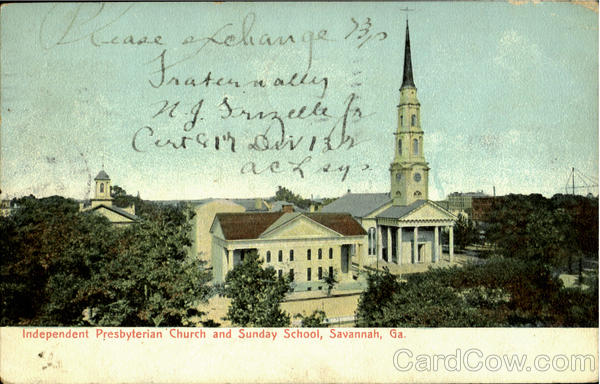 Please exchange 73s
Fraternally
N J Frizelle Jr
Cert 817 Div 132
ACL Ry
Independent Presbyterian Church and Sunday School, Savannah, Ga.
CardCow.com